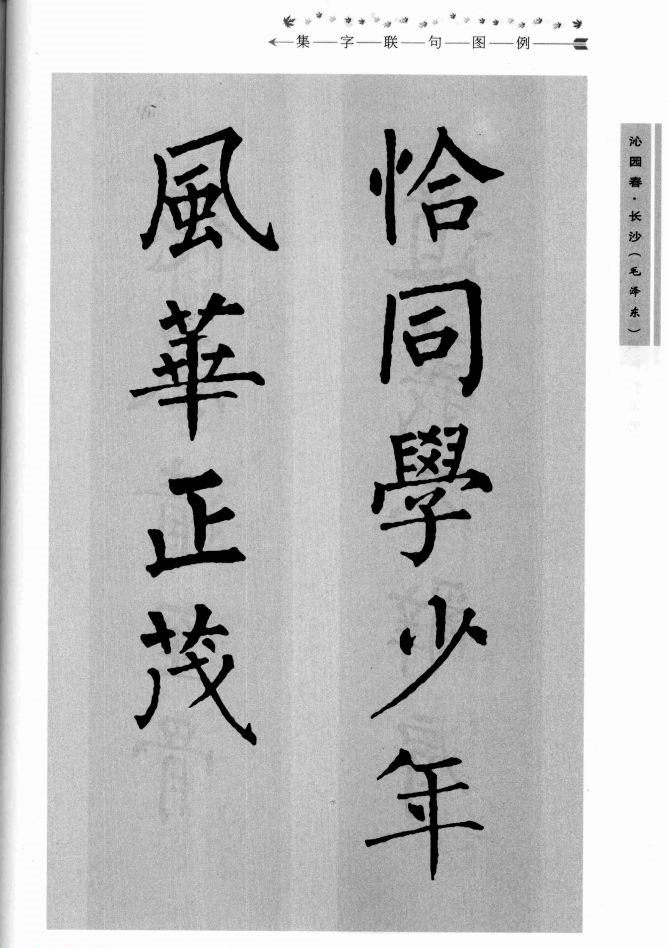 集字联句图例
沁园春·长沙(毛泽东)
恰同學少年
風華正茂